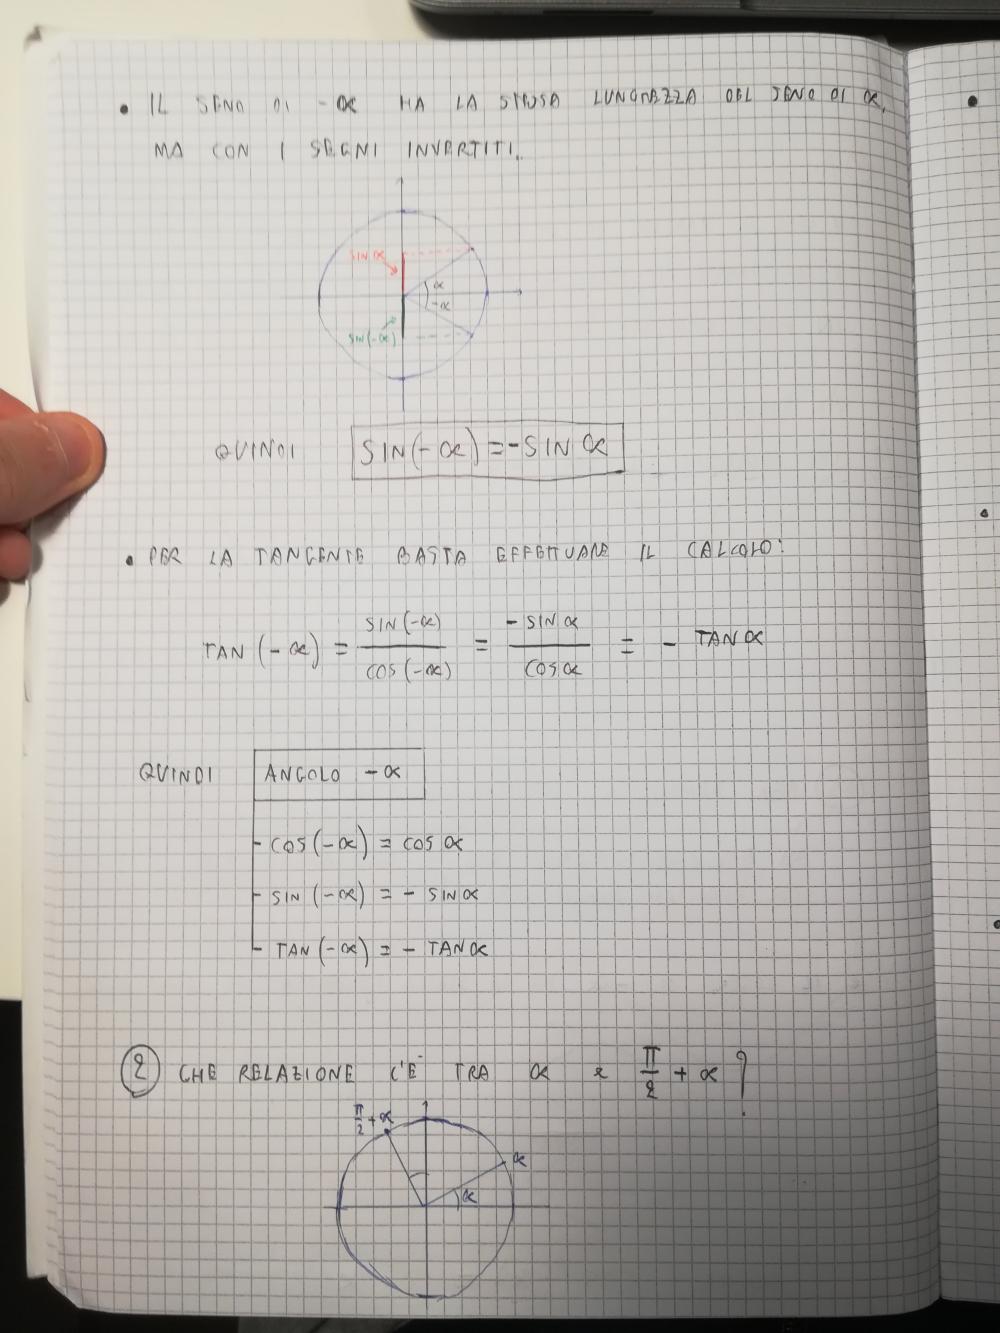 • IL SENO DI -α HA LA STESSA LUNGHEZZA DEL SENO DI α,
MA CON I SEGNI INVERTITI.
SIN α
α
-α
SIN(-α)
QUINDI SIN(-α) = -SIN α
• PER LA TANGENTE BASTA EFFETTUARE IL CALCOLO:
TAN (-α) = SIN(-α) / COS(-α) = -SIN α / COS α = - TAN α
QUINDI ANGOLO -α
- COS(-α) = COS α
- SIN (-α) = - SIN α
- TAN (-α) = - TAN α
2 CHE RELAZIONE C'È TRA α E π/2 + α ?
π/2 + α
α
α